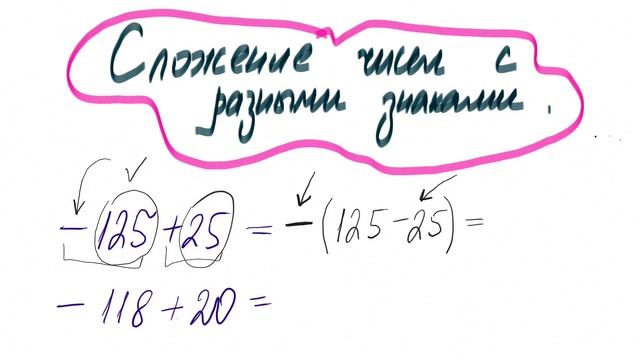 Сложение чисел с
разными знаками.
-125+25=-(125-25)=
-118+20=